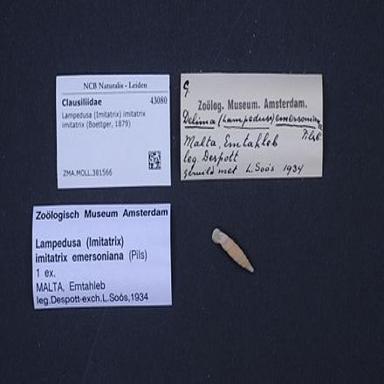 NCB Naturalis - Leiden
Clausiliidae 43080
Lampedusa (Imitatrix) imitatrix
imitatrix (Boettger, 1879)
ZMA.MOLL.381566
G
Zoölog. Museum. Amsterdam.
Delima (Lampedusa) emersoniana
Pilsb.
Malta, Emtahleb
leg. Despott
geruild met L. Soós 1934
Zoölogisch Museum Amsterdam
Lampedusa (Imitatrix)
imitatrix emersoniana (Pils)
1 ex.
MALTA, Emtahleb
leg.Despott-exch.L.Soós,1934